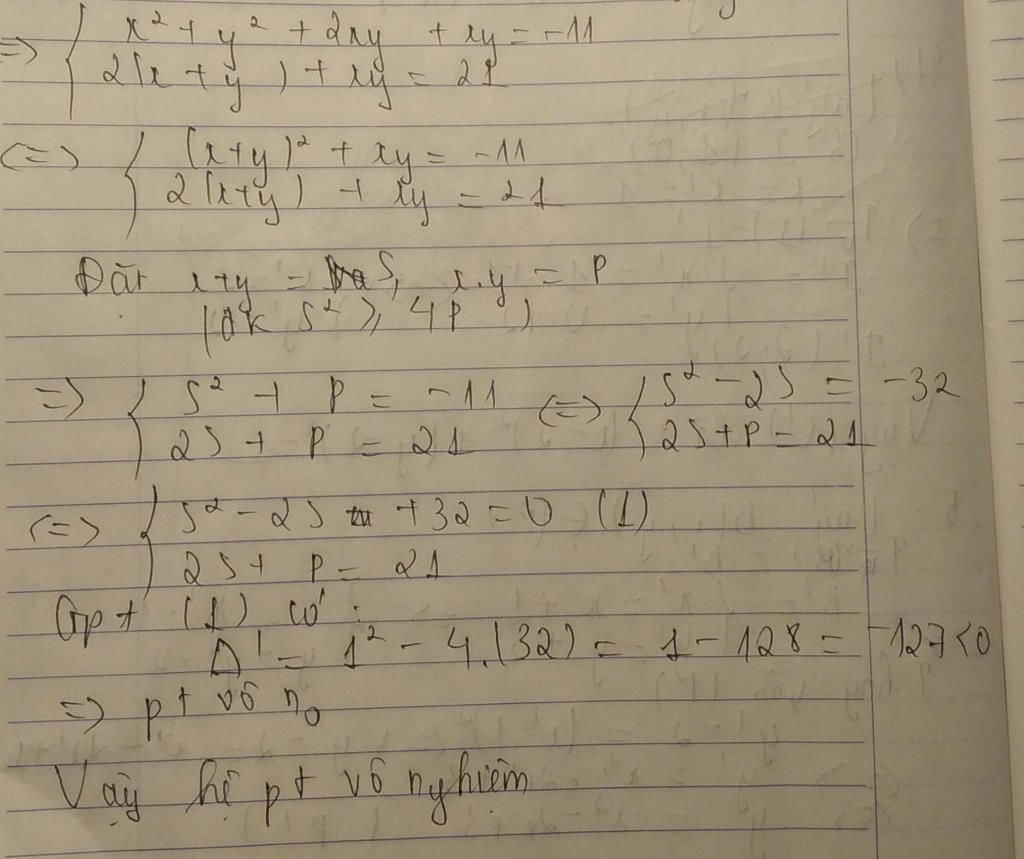 => { x² + y² + 2xy + xy = -11
2(x + y) + xy = 21
<=> { (x+y)² + xy = -11
2(x+y) + xy = 21
Đặt x+y = S, x.y = P
(đk S² ≥ 4P)
=> { S² + P = -11 <=> { S² - 2S = -32
2S + P = 21 2S + P = 21
<=> { S² - 2S + 32 = 0 (1)
2S + P = 21
Gpt (1) có :
Δ' = 1² - 4.(32) = 1 - 128 = -127 < 0
=> pt vô n₀
Vậy hệ pt vô nghiệm